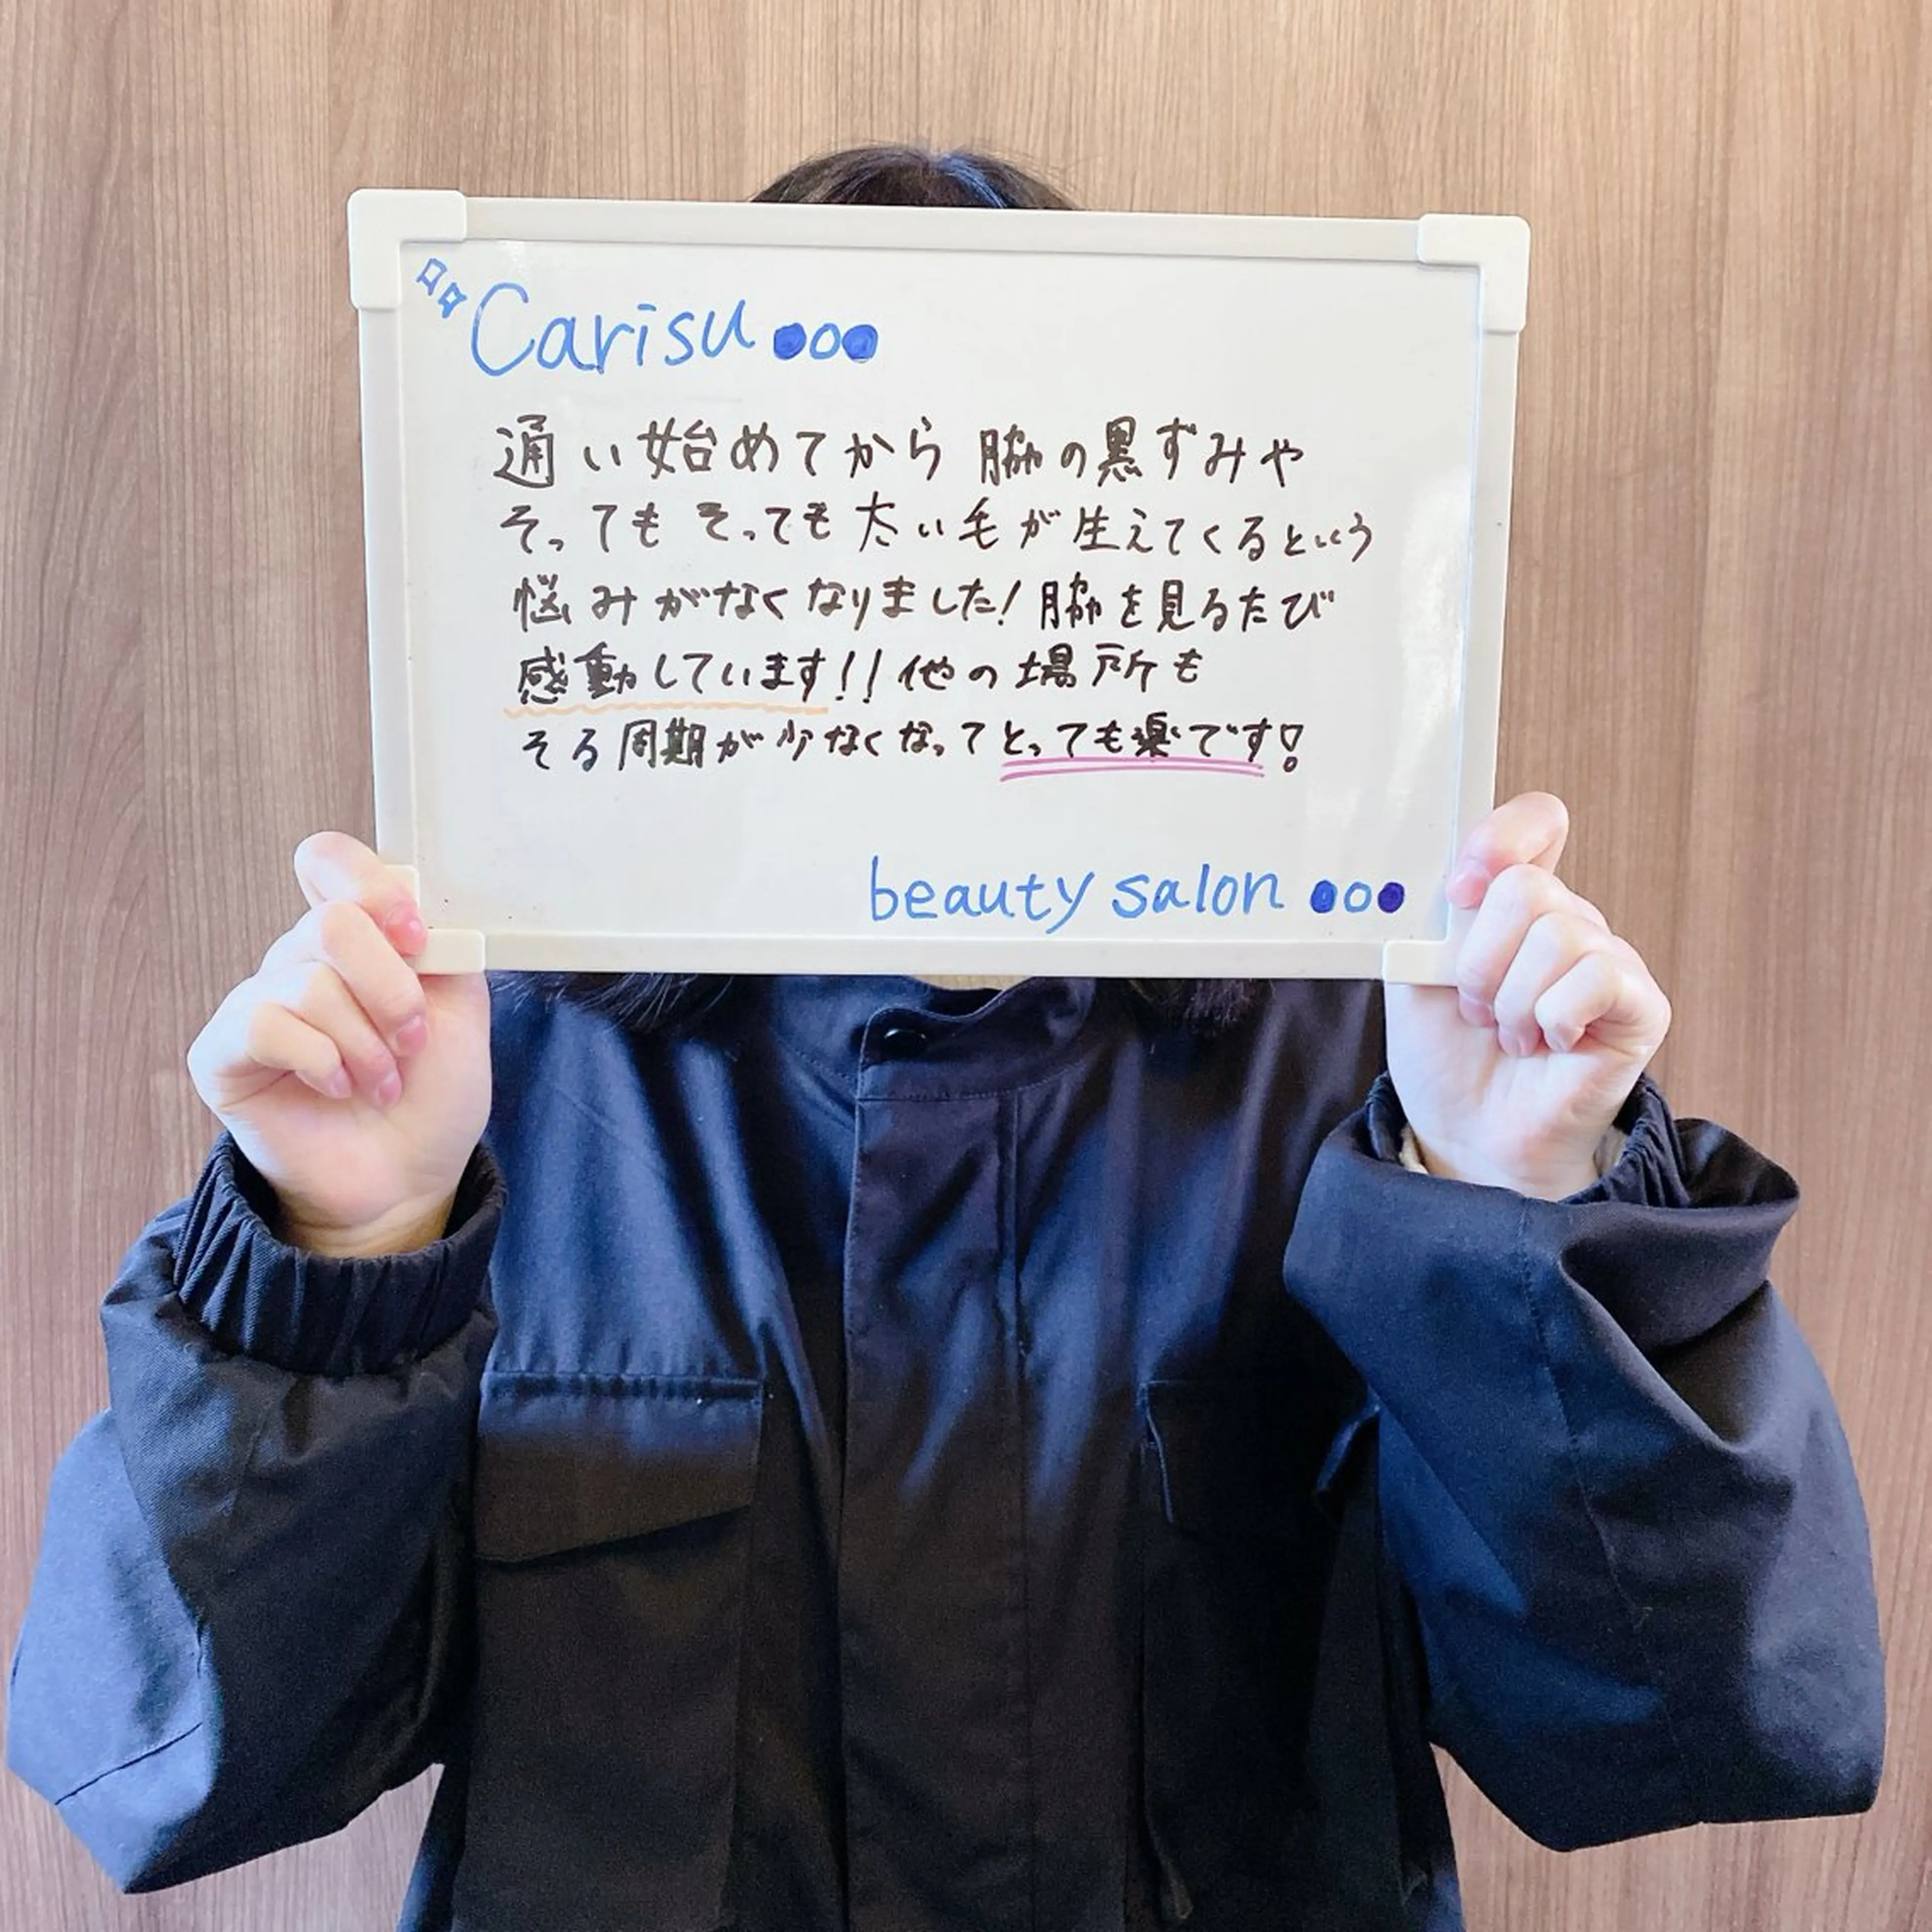 Carisu●○●
通い始めてから 脇の黒ずみや
そっても そっても 太い毛が生えてくるという
悩みがなくなりました！脇を見るたび
感動しています！！他の場所も
そる周期が少なくなってとっても楽です！
beauty salon ●○●